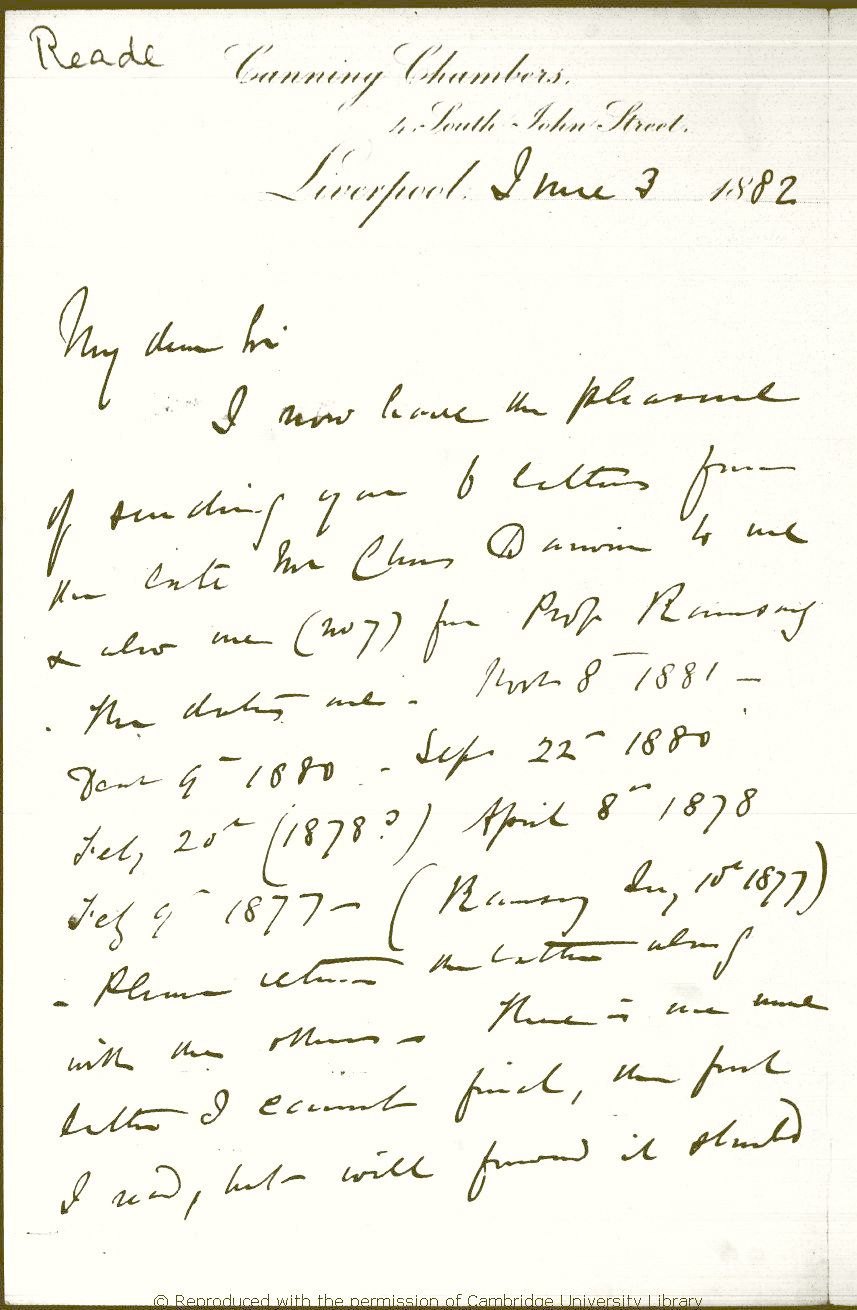 Reade
Canning Chambers,
4, South John Street.
Liverpool. June 3 1882
My dear Sir
I now have the pleasure
of sending you 6 letters from
the late Mr Chas Darwin to me
& also one (no 7) from Prof Ramsay
. The dates are - Novr 8th 1881 -
Decr 9th 1880 - Sepr 22nd 1880
Feby 20th (1878?) April 8th 1878
Feby 9th 1877 - (Ramsay 10th 1877)
- Please return the letter along
with the others - There is one more
letter I cannot find, the first
I recd, but will forward it should
© Reproduced with the permission of Cambridge University Library